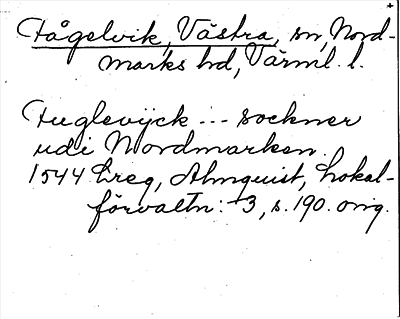 Fågelvik, Västra, sn, Nord-
marks hd, Värml. l.
Fuglevijck --- sockner
udi Nordmarken.
1544 Ereg, Almquist, Lokal-
förvaltn: 3, s. 190. orig.